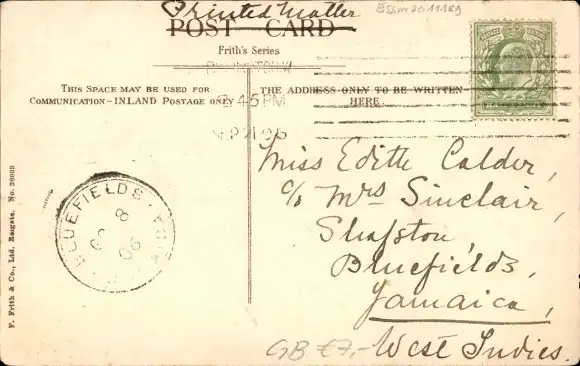 Printed Matter
BSsm201118g
POST CARD
Frith's Series
THIS SPACE MAY BE USED FOR
COMMUNICATION-INLAND POSTAGE ONLY
THE ADDRESS ONLY TO BE WRITTEN
HERE
2 45 PM
SEP 21 06
Miss Edith Calder,
c/o Mrs Sinclair,
Shafston,
Bluefields,
Jamaica,
West Indies.
BLUEFIELDS
8
06
F. Frith & Co., Ltd. Reigate. No. 38003
GB €7,-